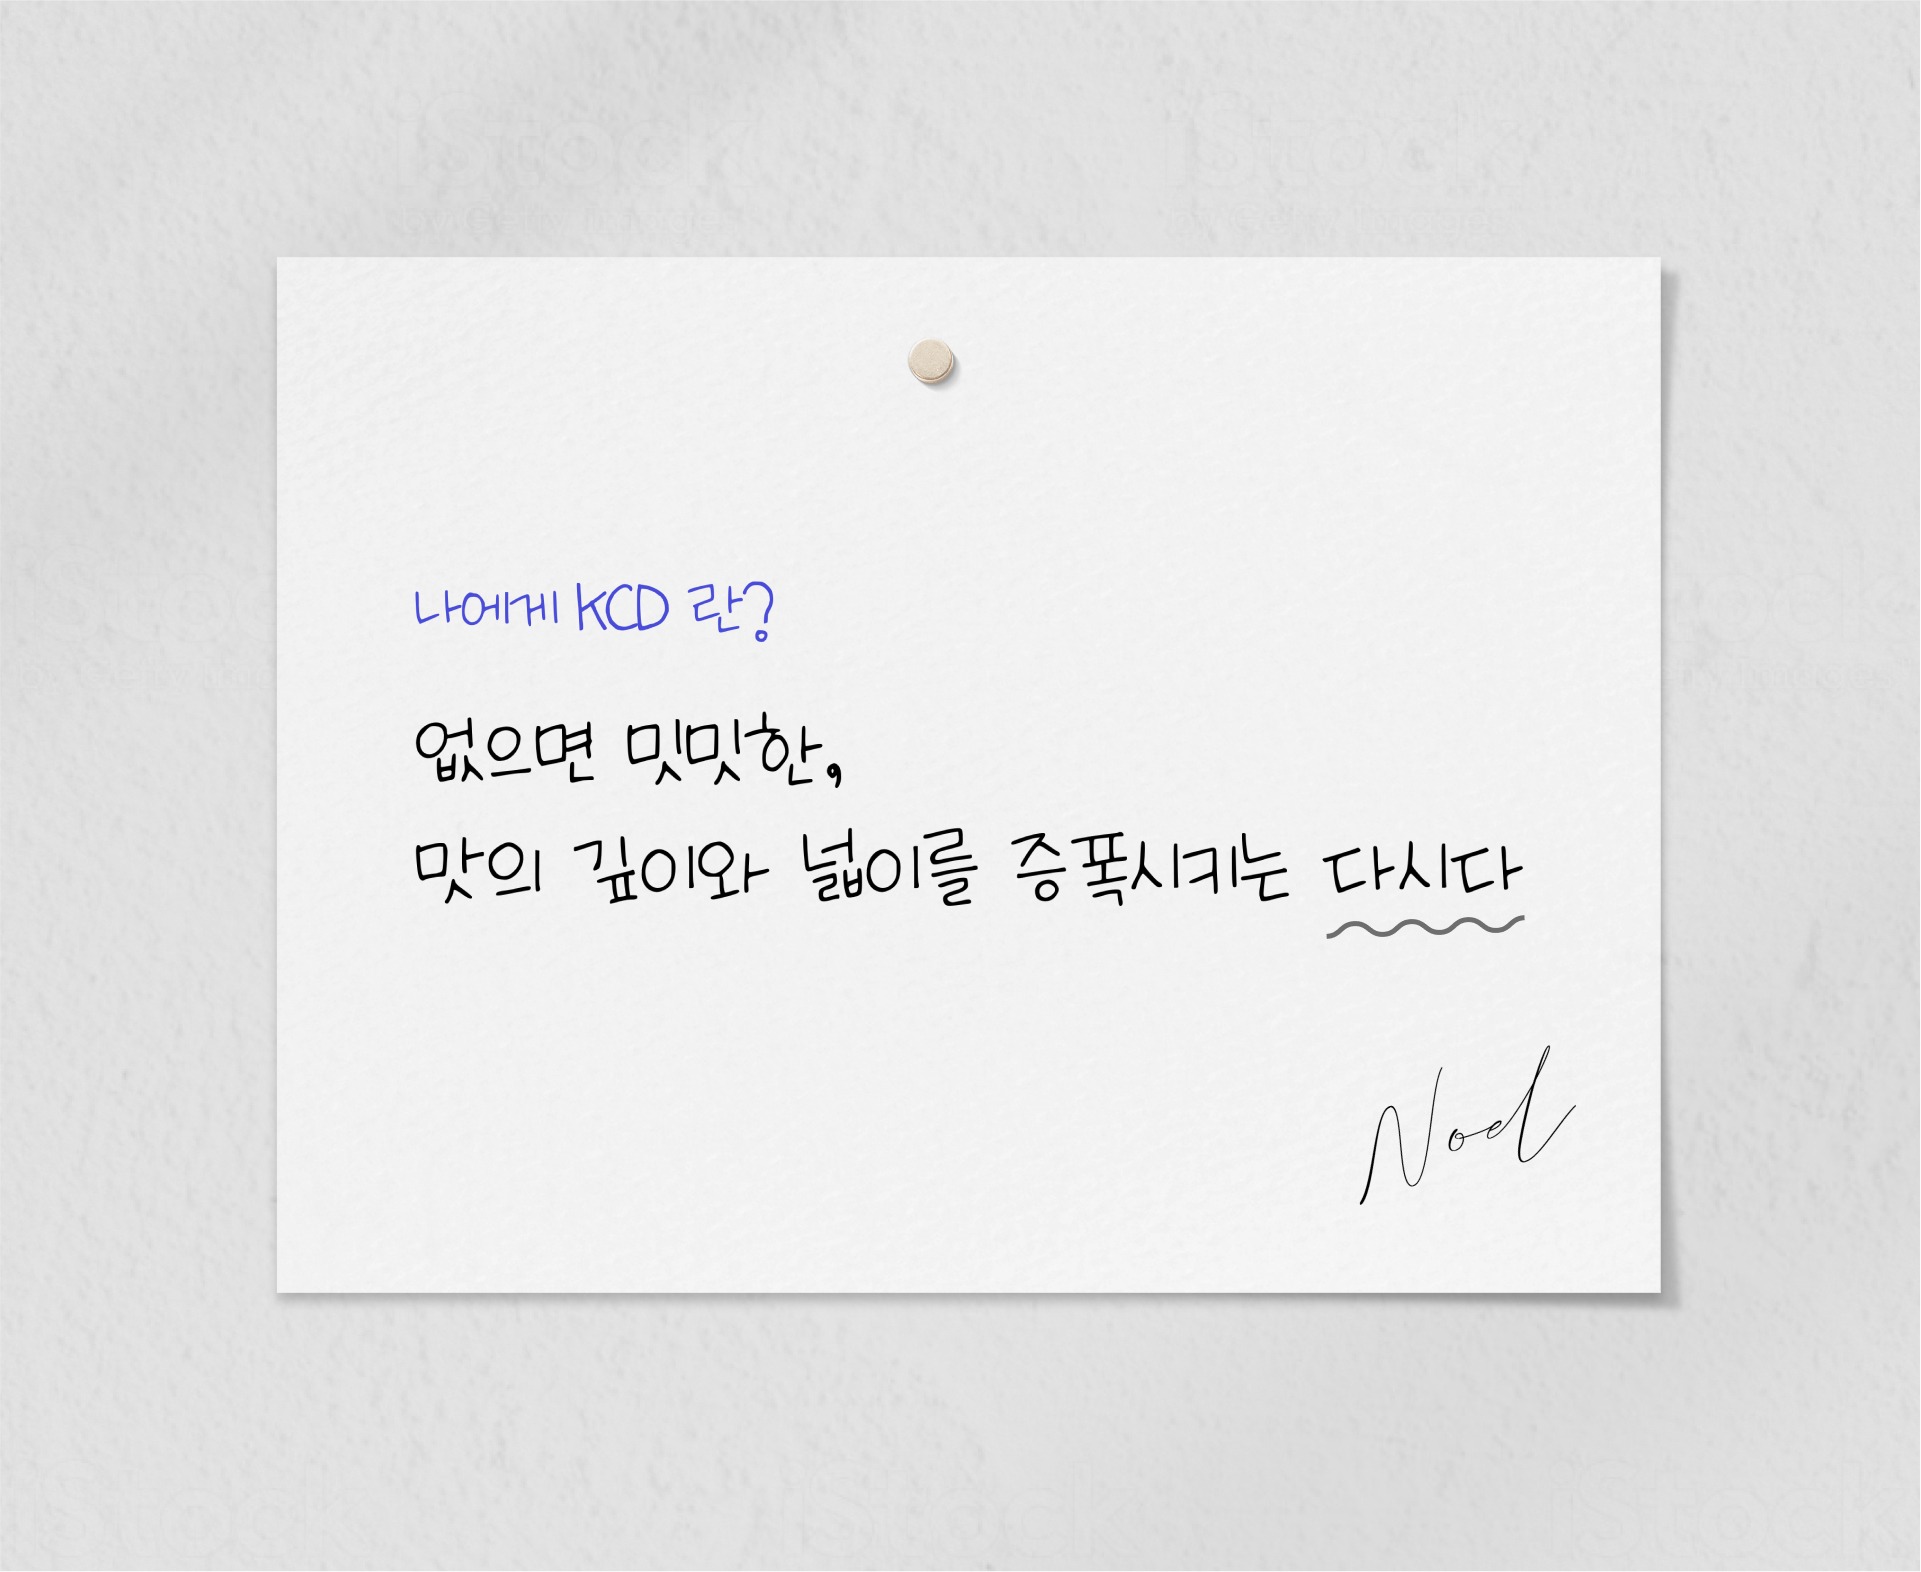 나에게 KCD 란?
없으면 밋밋한,
맛의 깊이와 넓이를 증폭시키는 다시다
Noel